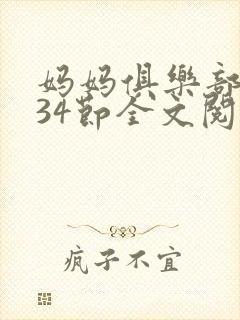 妈妈俱乐部
34节全文阅
疯子不宜